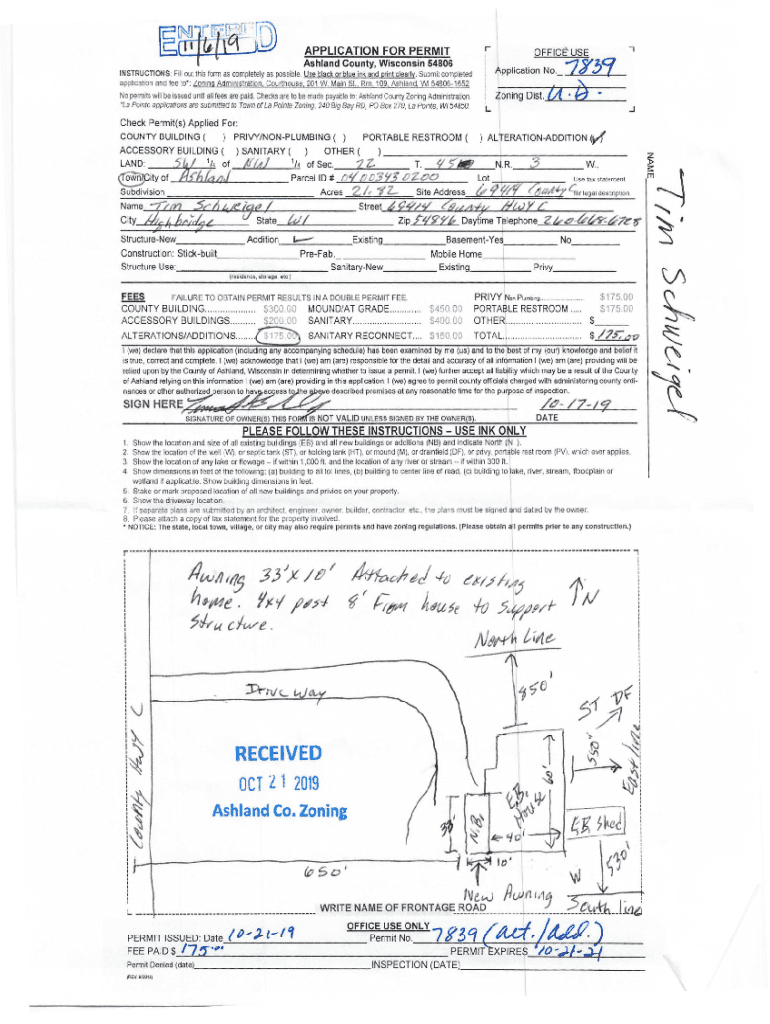 ENTERED
11/6/19
APPLICATION FOR PERMIT
Ashland County, Wisconsin 54806
INSTRUCTIONS: Fill out this form as completely as possible. Use black or blue ink and print clearly. Submit completed
application and fee to*: Zoning Administration, Courthouse, 201 W. Main St., Rm. 109, Ashland, WI 54806-1652
No permits will be issued until all fees are paid. Checks are to be made payable to: Ashland County Zoning Administration
*La Pointe applications are submitted to Town of La Pointe Zoning, 240 Big Bay RD, PO Box 270, La Pointe, WI 54850
OFFICE USE
Application No. 7839
Zoning Dist. U.D.
Check Permit(s) Applied For:
COUNTY BUILDING ( ) PRIVY/NON-PLUMBING ( ) PORTABLE RESTROOM ( ) ALTERATION-ADDITION (✓)
ACCESSORY BUILDING ( ) SANITARY ( ) OTHER ( )
LAND: SW ¼ of NW ¼ of Sec. 22 T. 45 N.R. 3 W..
Town/City of Ashland Parcel ID # 04003430200 Lot Use tax statement
Subdivision Acres 21.82 Site Address 69414 County C for legal description
Name Tim Schweigel Street 69414 County HWY C
City Highbridge State WI Zip 54846 Daytime Telephone 260 668-6728
Structure-New Addition ✓ Existing Basement-Yes No
Construction: Stick-built Pre-Fab. Mobile Home
Structure Use: Sanitary-New Existing Privy
(residence, storage, etc.)
NAME Tim Schweigel
FEES FAILURE TO OBTAIN PERMIT RESULTS IN A DOUBLE PERMIT FEE. PRIVY Non Plumbing $175.00
COUNTY BUILDING $300.00 MOUND/AT GRADE $450.00 PORTABLE RESTROOM $175.00
ACCESSORY BUILDINGS $200.00 SANITARY $400.00 OTHER $
ALTERATIONS/ADDITIONS $175.00 SANITARY RECONNECT $150.00 TOTAL $175.00
I (we) declare that this application (including any accompanying schedule) has been examined by me (us) and to the best of my (our) knowledge and belief it
is true, correct and complete. I (we) acknowledge that I (we) am (are) responsible for the detail and accuracy of all information I (we) am (are) providing will be
relied upon by the County of Ashland, Wisconsin in determining whether to issue a permit. I (we) further accept all liability which may be a result of the County
of Ashland relying on this information I (we) am (are) providing in this application. I (we) agree to permit county officials charged with administering county ordi-
nances or other authorized person to have access to the above described premises at any reasonable time for the purpose of inspection.
SIGN HERE 10-17-19
SIGNATURE OF OWNER(S) THIS FORM IS NOT VALID UNLESS SIGNED BY THE OWNER(S). DATE
PLEASE FOLLOW THESE INSTRUCTIONS – USE INK ONLY
1. Show the location and size of all existing buildings (EB) and all new buildings or additions (NB) and indicate North (N ).
2. Show the location of the well (W), or septic tank (ST), or holding tank (HT), or mound (M), or drainfield (DF), or privy, portable rest room (PV), which ever applies.
3. Show the location of any lake or flowage – if within 1,000 ft. and the location of any river or stream – if within 300 ft.
4. Show dimensions in feet of the following: (a) building to all lot lines, (b) building to center line of road, (c) building to lake, river, stream, floodplain or
wetland if applicable. Show building dimensions in feet.
5. Stake or mark proposed location of all new buildings and privies on your property.
6. Show the driveway location.
7. If separate plans are submitted by an architect, engineer, owner, builder, contractor, etc., the plans must be signed and dated by the owner.
8. Please attach a copy of tax statement for the property involved.
* NOTICE: The state, local town, village, or city may also require permits and have zoning regulations. (Please obtain all permits prior to any construction.)
Awning 33'x10' Attached to existing
home. 4x4 post 8' From house to support
structure.
N
North Line
850'
Drive way
ST DF
550'
East line
County Hwy C
RECEIVED
OCT 21 2019
Ashland Co. Zoning
33'
N.B.
E.B. House
60'
40'
EB Shed
650'
10'
W
530'
New Awning
South line
WRITE NAME OF FRONTAGE ROAD
OFFICE USE ONLY
PERMIT ISSUED: Date 10-21-19 Permit No. 7839 (alt./add.)
FEE PAID $ 175.00 PERMIT EXPIRES 10-21-21
Permit Denied (date) INSPECTION (DATE)